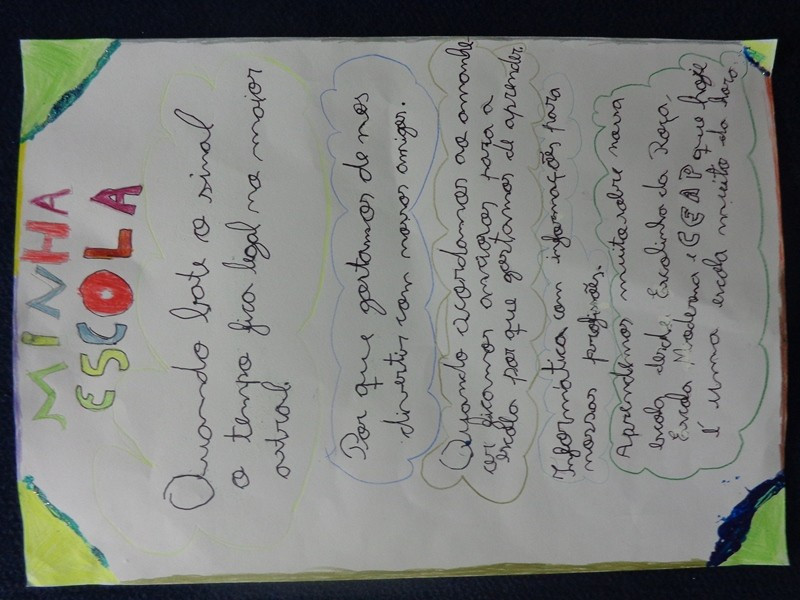 MINHA
ESCOLA
Quando bate o sinal
o tempo fica legal no maior
astral.
Por que gostamos de nos
divertir com nossos amigos.
Quando acordamos ao amanhe
cer ficamos ansiosos para a
escola por que gostamos de aprender
Informática com informações para
nossas profissões.
Aprendemos muito sobre nossa
escola desde Escolinha da Roça,
Escola Moderna e CEAP que hoje
é uma escola muito da hora.